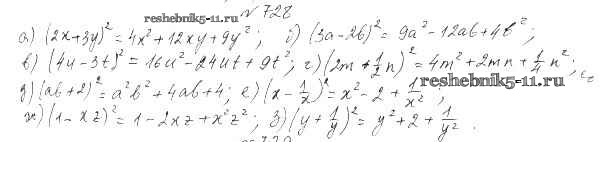 reshebnik5-11.ru № 728
а) (2x+3y)² = 4x² + 12xy + 9y²; б) (3a - 2b)² = 9a² - 12ab + 4b²;
в) (4u - 3t)² = 16u² - 24ut + 9t²; г) (2m + 1/2 n)² = 4m² + 2mn + 1/4 n²;
reshebnik5-11.ru
д) (ab + 2)² = a²b² + 4ab + 4; е) (x - 1/x)² = x² - 2 + 1/x²;
ж) (1 - xz)² = 1 - 2xz + x²z²; з) (y + 1/y)² = y² + 2 + 1/y².